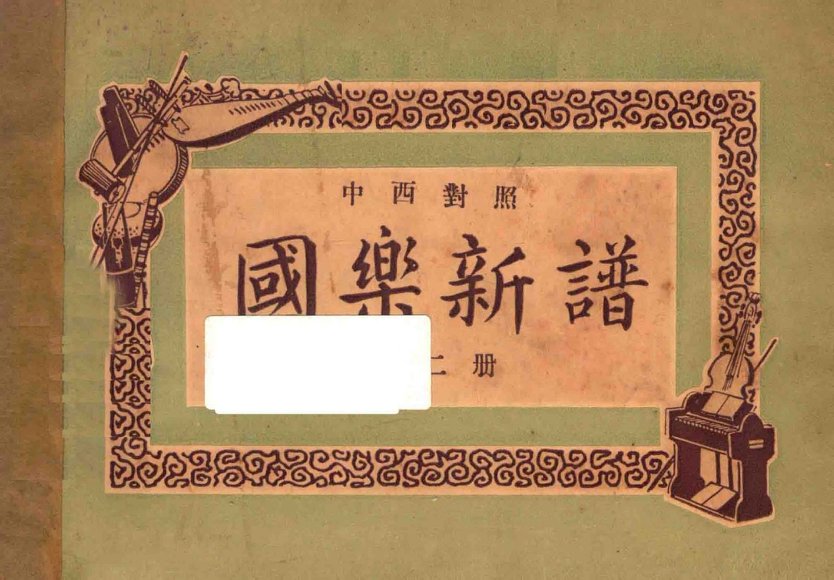 中西對照
國樂新譜
二册